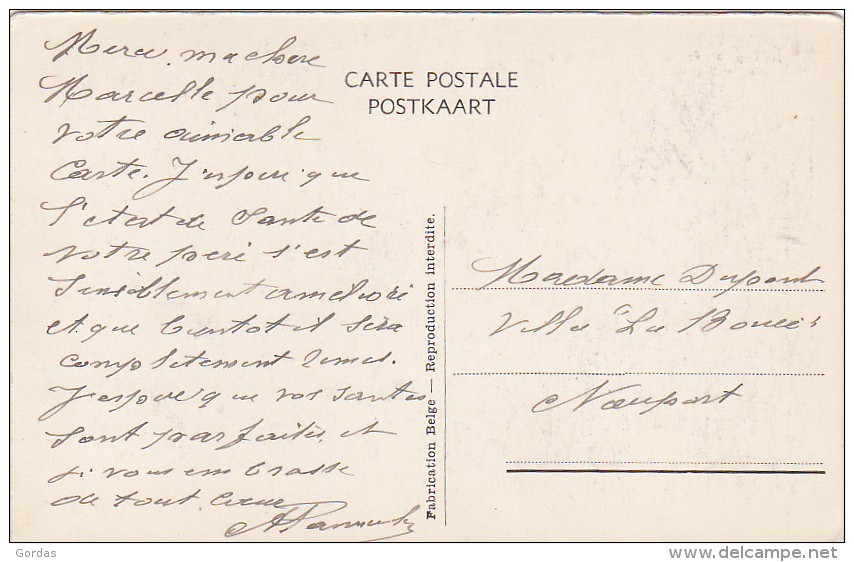 Merci ma chère
Marcelle pour
votre aimable
Carte. J'espère que
l'état de Santé de
votre père s'est
Sensiblement amélioré
et que bientôt il sera
complètement remis.
J'espère que vos santés
sont parfaites et
je vous embrasse
de tout Cœur
CARTE POSTALE
POSTKAART
Fabrication Belge — Reproduction interdite.
Madame Dupont
Villa "La
Nieuport
Gordas
www.delcampe.net